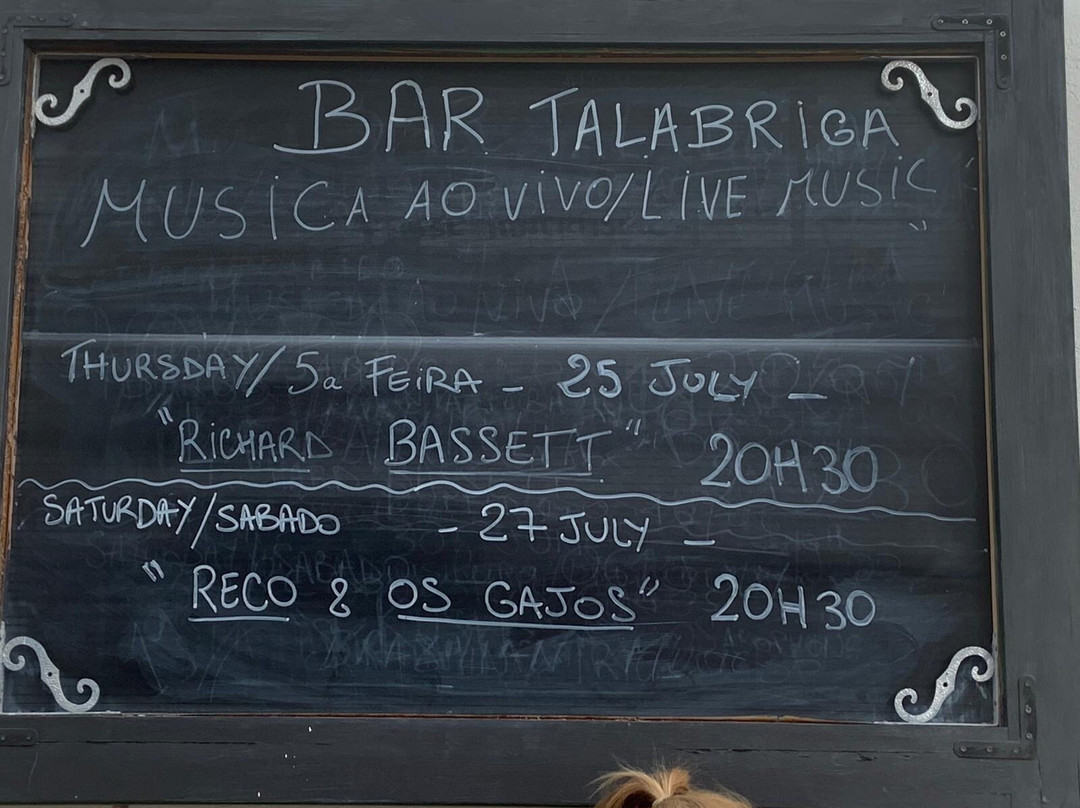 BAR TALABRIGA
MUSICA AO VIVO/LIVE MUSIC
THURSDAY/5a FEIRA - 25 JULY -
"RICHARD BASSETT" 20H30
SATURDAY/SABADO - 27 JULY -
"RECO & OS GAJOS" 20H30